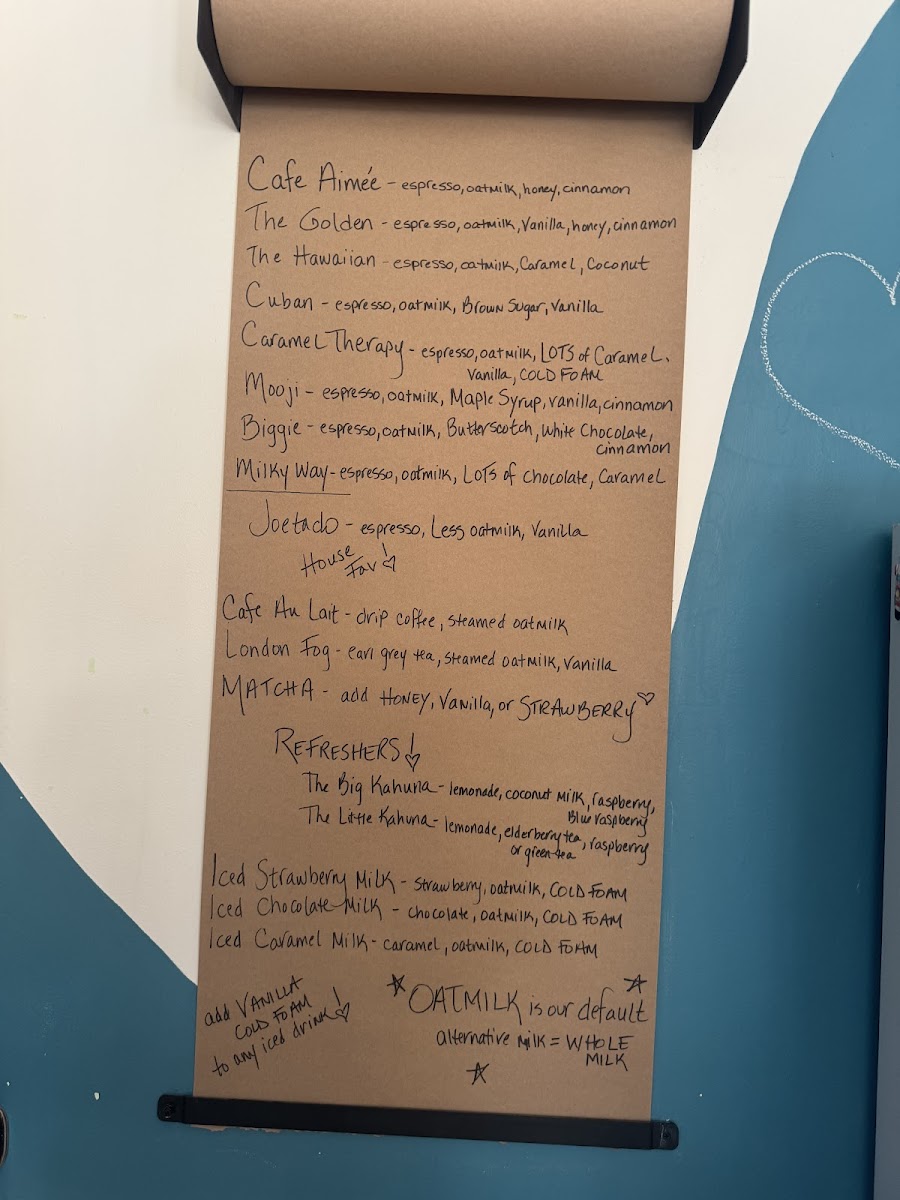 Cafe Aimée - espresso, oatmilk, honey, cinnamon
The Golden - espresso, oatmilk, Vanilla, honey, cinnamon
The Hawaiian - espresso, oatmilk, Caramel, Coconut
Cuban - espresso, oatmilk, Brown Sugar, Vanilla
Caramel Therapy - espresso, oatmilk, LOTS of Caramel,
Vanilla, COLD FOAM
Mooji - espresso, oatmilk, Maple Syrup, vanilla, cinnamon
Biggie - espresso, oatmilk, Butterscotch, White Chocolate,
cinnamon
Milky Way - espresso, oatmilk, LOTS of chocolate, Caramel
Joetado - espresso, Less oatmilk, Vanilla
House
Fav!
Cafe Au Lait - drip coffee, steamed oatmilk
London Fog - earl grey tea, steamed oatmilk, Vanilla
MATCHA - add HONEY, Vanilla, or STRAWBERRY
REFRESHERS!
The Big Kahuna - lemonade, coconut milk, raspberry,
Blue raspberry
The Little Kahuna - lemonade, elderberry tea, raspberry
or green tea
Iced Strawberry Milk - strawberry, oatmilk, COLD FOAM
Iced Chocolate Milk - chocolate, oatmilk, COLD FOAM
Iced Caramel Milk - caramel, oatmilk, COLD FOAM
add VANILLA
COLD FOAM
to any iced drink!
OATMILK is our default
alternative milk = WHOLE
MILK